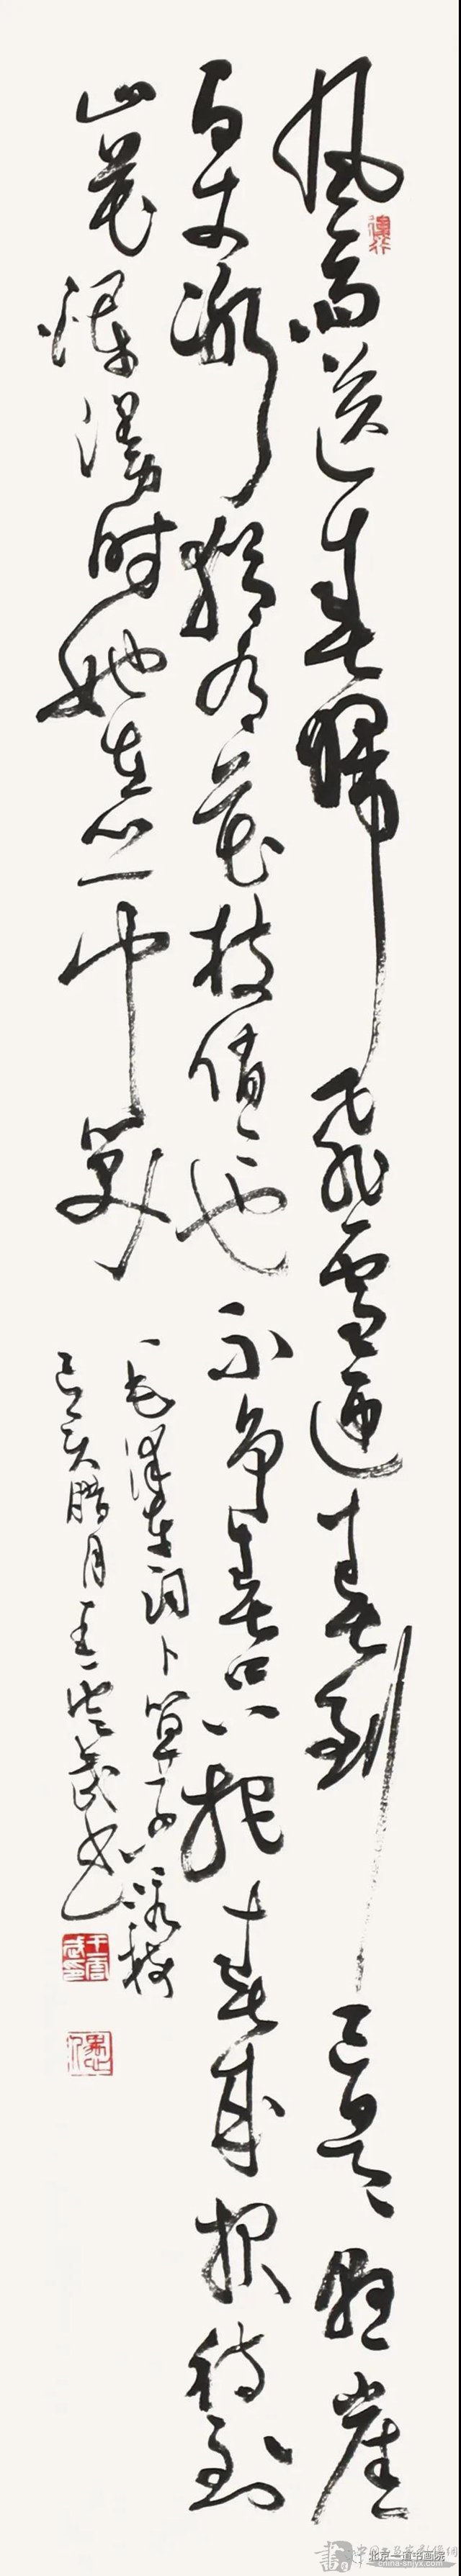 风雨送春归飞雪迎春到已是悬崖
百丈冰犹有花枝俏俏也不争春只把春来报待到
山花烂漫时她在丛中笑
毛泽东词卜算子咏梅
己亥腊月王云武书
北京一道书画院